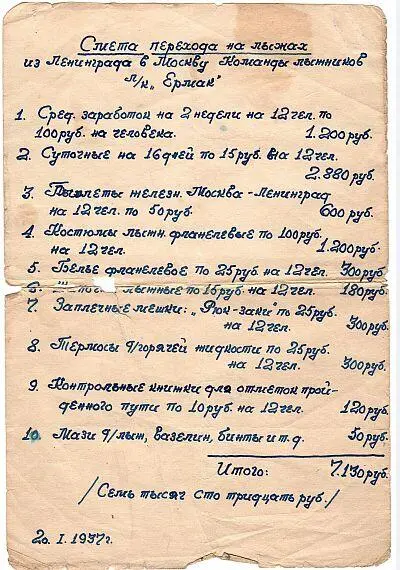 Смета перехода на лыжах
из Ленинграда в Москву Команды лыжников
л/к „Ермак"
1. Сред. заработок на 2 недели на 12 чел. по
100 руб. на человека. 1.200 руб.
2. Суточные на 16 дней по 15 руб. на 12 чел.
2.880 руб.
3. Билеты железн. Москва - Ленинград
на 12 чел. по 50 руб. 600 руб.
4. Костюмы лыжн. фланелевые по 100 руб.
на 12 чел. 1.200 руб.
5. Белье фланелевое по 25 руб. на 12 чел. 300 руб.
6. лыжные по 15 руб. на 12 чел. 180 руб.
7. Заплечные мешки: „Рюк-заки" по 25 руб.
на 12 чел. 300 руб.
8. Термосы д/горячей жидкости по 25 руб.
на 12 чел. 300 руб.
9. Контрольные книжки для отметок прой-
денного пути по 10 руб. на 12 чел. 120 руб.
10. Мази д/лыж, вазелин, бинты и т.д. 50 руб.
Итого: 7.130 руб.
/Семь тысяч сто тридцать руб./
20. I. 1937 г.